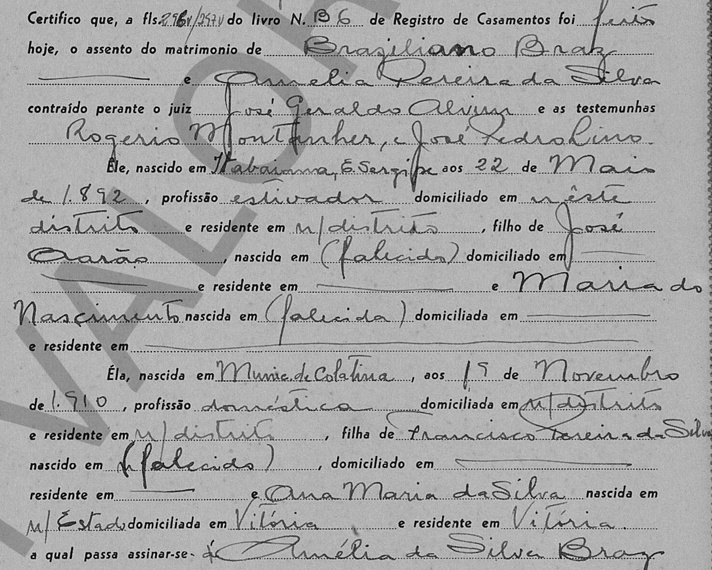 Certifico que, a fls. 296v/297v do livro N. B 6 de Registro de Casamentos foi feito
hoje, o assento do matrimonio de Braziliano Braz
e Amelia Pereira da Silva
contraído perante o juiz José Geraldo Alvim e as testemunhas
Rogerio e José Pedro Lino
Êle, nascido em Itabaiana, E. Sergipe aos 22 de Maio
de 1.892, profissão estivador domiciliado em nêste
distrito e residente em n/distrito, filho de José
Aarão, nascido em (falecido) domiciliado em
e residente em e Maria do
Nascimento nascida em (falecida) domiciliada em
e residente em
Éla, nascida em Munic. de Colatina, aos 19 de Novembro
de 1.910, profissão doméstica domiciliada em n/distrito
e residente em n/distrito, filha de Francisco Pereira da Silva
nascido em (falecido), domiciliado em
residente em e Ana Maria da Silva nascida em
n/Estado domiciliada em Vitória e residente em Vitória.
a qual passa assinar-se Amélia da Silva Braz
VALOR